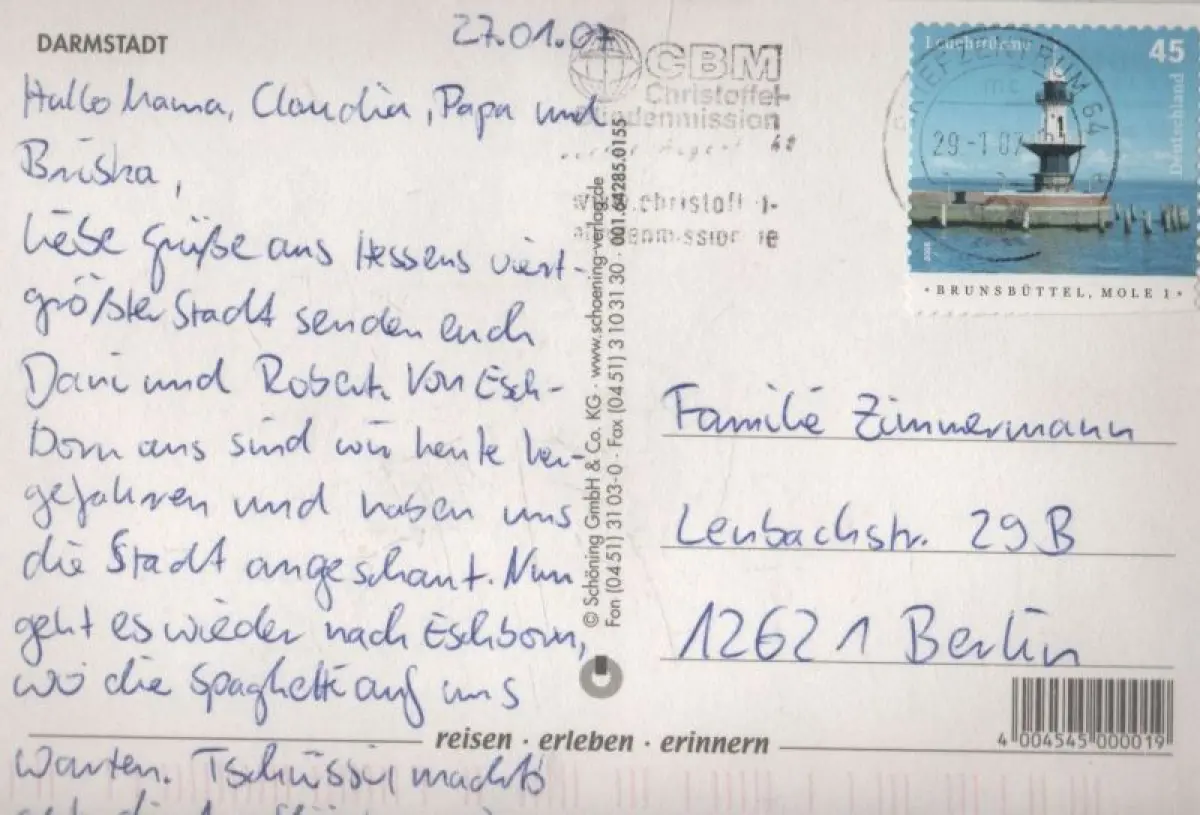 DARMSTADT
27.01.07
Hallo Mama, Claudia, Papa und
Briska,
liebe Grüße aus Hessens viert-
größter Stadt senden euch
Dani und Robert. Von Esch-
born aus sind wir heute her-
gefahren und haben uns
die Stadt angeschaut. Nun
geht es wieder nach Eschborn,
wo die Spaghetti auf uns
warten. Tschüssi machts
CBM
Christoffel-
Blindenmission
www.christoffel-
blindenmission.de
© Schöning GmbH & Co. KG · www.schoening-verlag.de
Fon (04 51) 31 03-0 · Fax (04 51) 3 10 31 30 · 001.64285.0155
Leuchttürme
45
Deutschland
BRIEFZENTRUM 64
29-1.07
· BRUNSBÜTTEL, MOLE 1 ·
Familie Zimmermann
Lenbachstr. 29B
12621 Berlin
4 004545 000019
reisen · erleben · erinnern